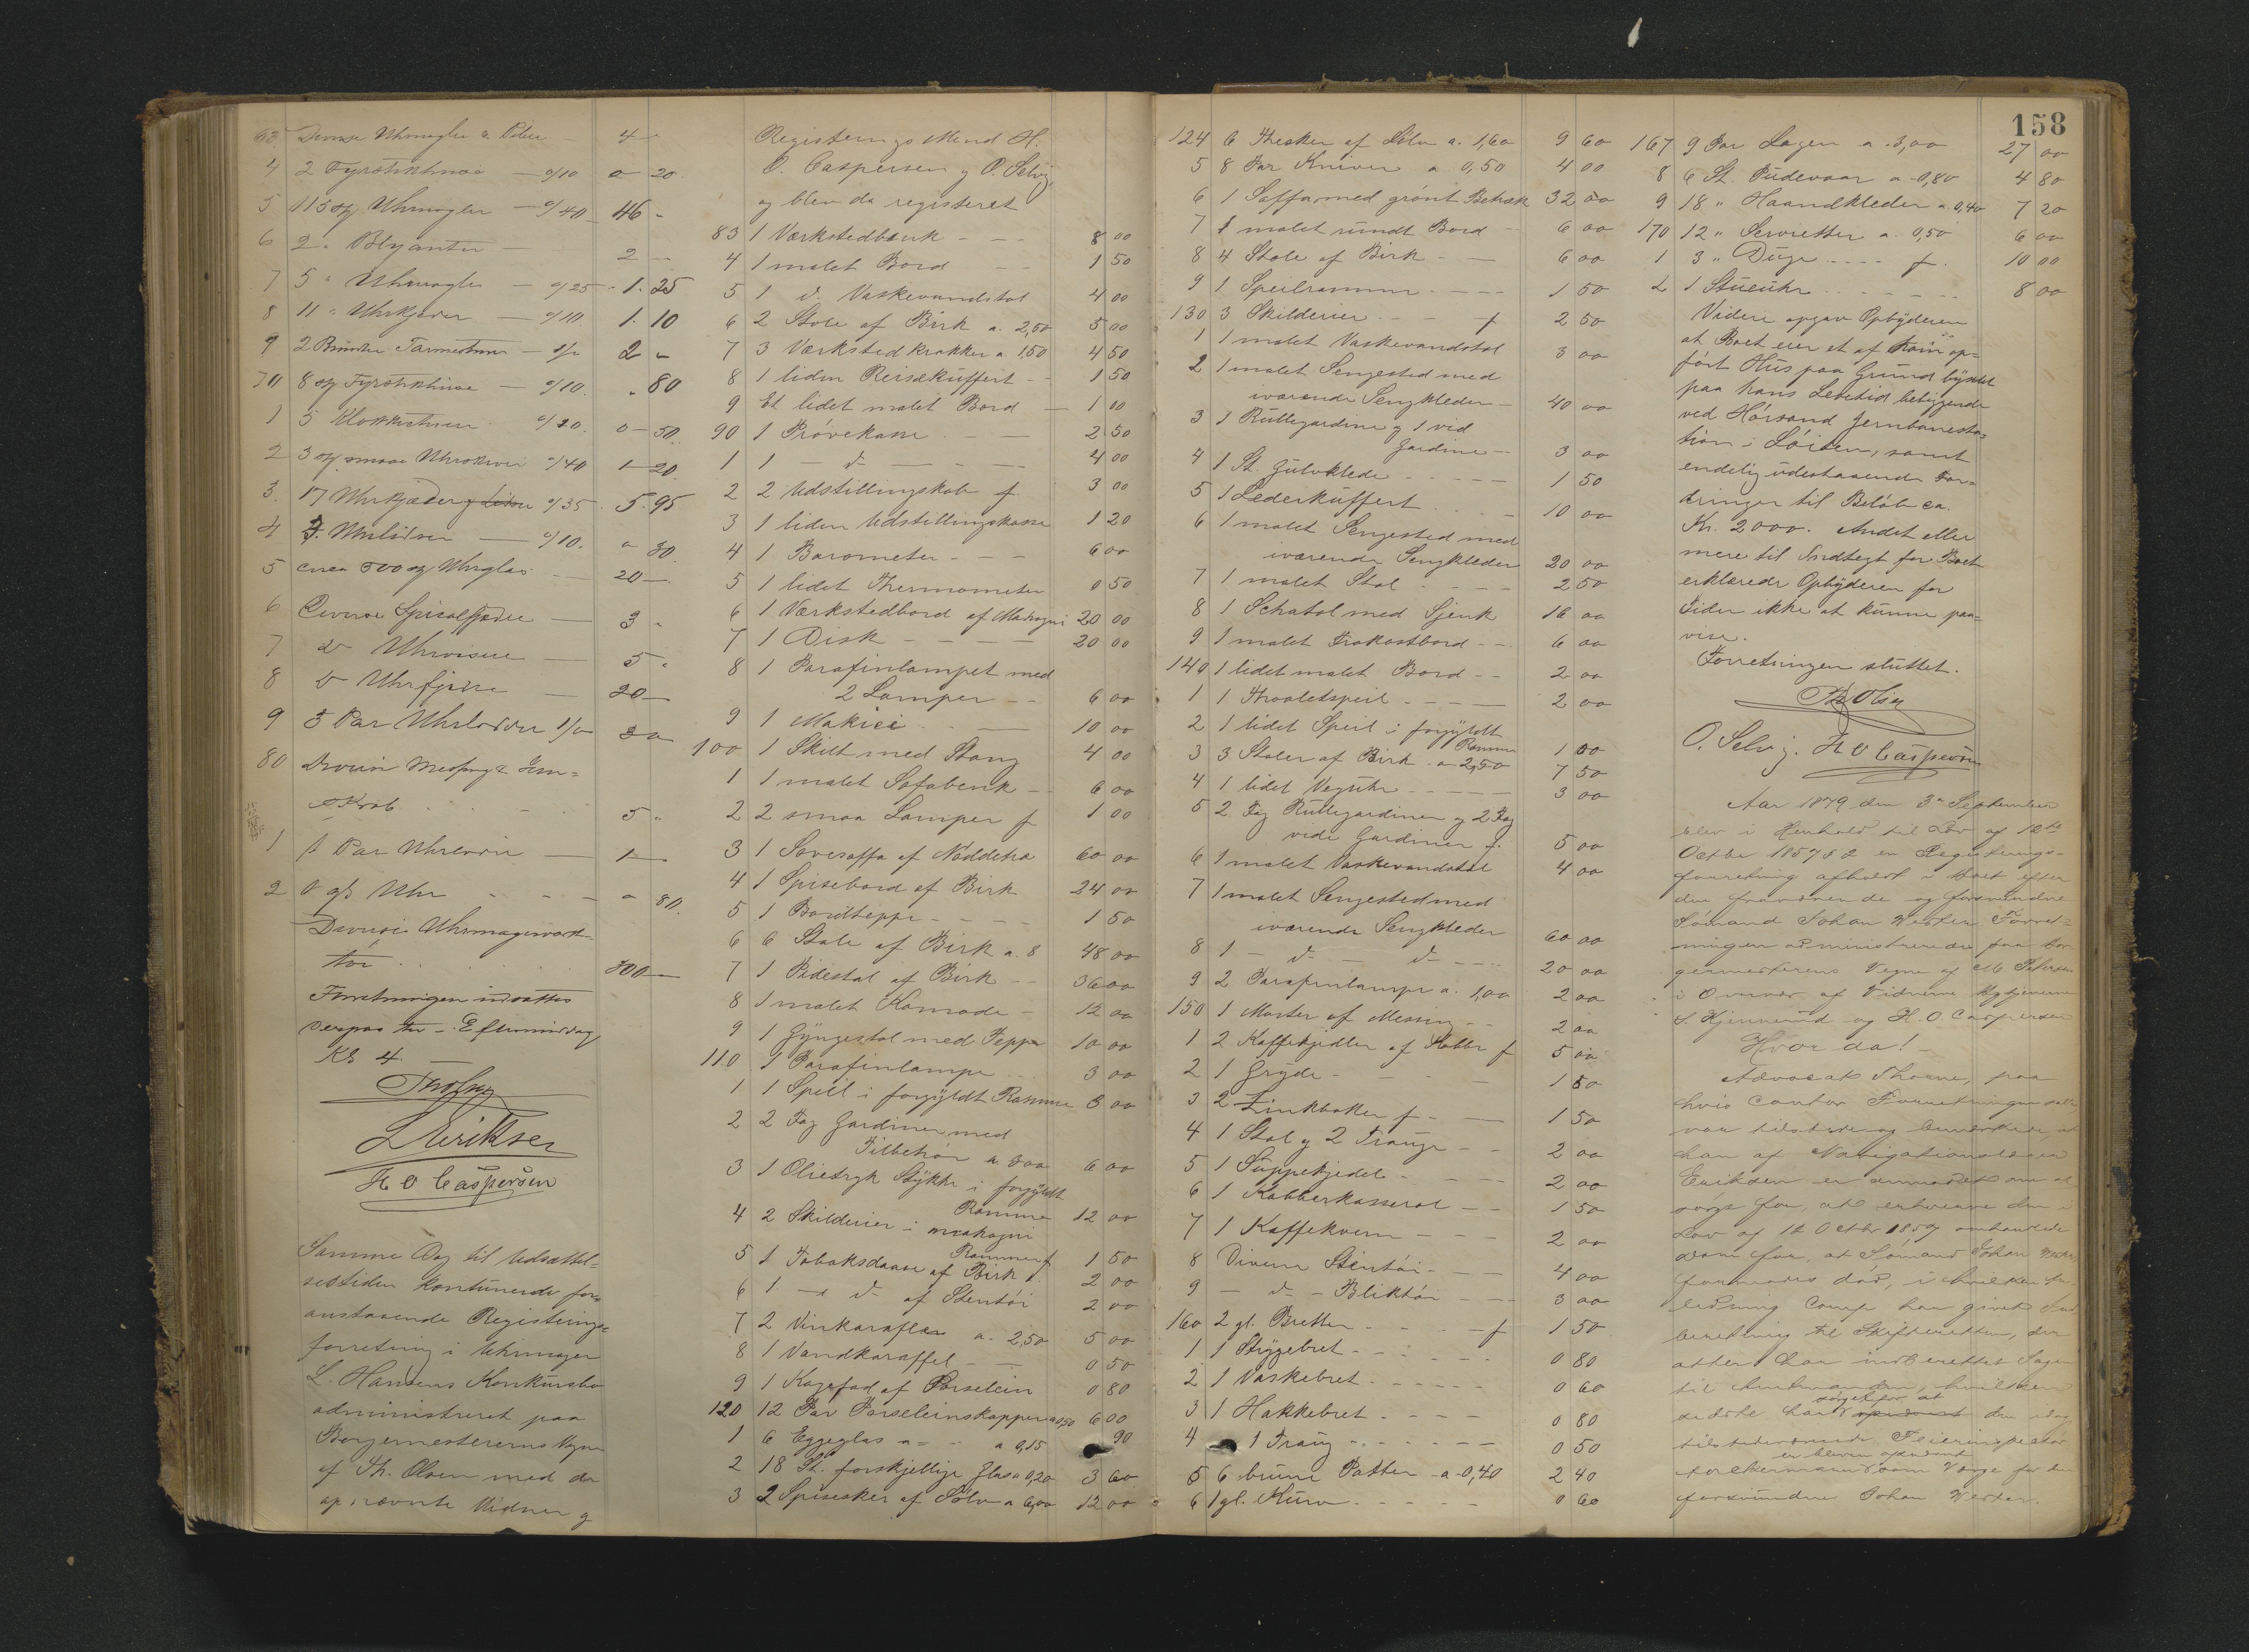 63 Diverse Uhrnøgler a Piber — 4 —
4 2 Fyrstikhuse — a/10 0 20.
5 115 og Uhrnøgler — a/40 46 -
6 2 " Blyanter — 2 —
7 5 " Uhrnøgler — a/25 - 1. 25
8 11 " Uhrkjæder — a/10. 1. 10
9 2 — 1/0 2 -
70 8 og Fyrstikhuse — a/10. . 80
1 5 a/10. 0 - 50.
2 3 og smaa a/40 1 - 20.
3. 17 Uhrkjæder a/35. 5. 95
4 3. — a/10. 0 30.
5 circa 500 og Uhrglas — 20 —
6 Diverse — 3 -
7 d Uhrvisere — 5 "
8 d Uhrfjedre — 20 —
9 3 Par 1/0 3 0
80 Messing & Jern=
Skrab . . . 5 "
1 1 Par — 1 —
2 gl. Uhr - - - 0 80.
Diverse Uhrmagerværk-
tøi . . . . . 300 —
Forretningen udsattes
Eftermiddag
Kl 4.
Th Olsen
L Eriksen
H O Caspersen
Samme Dag til Udsættel=
sestiden kontinuerde for=
anstaaende Registerings=
forretning i Uhrmager
L. Hansens Konkursbo
administreret paa
Borgermesterens Vegne
af Th. Olsen med de
opnævnte Vidner g
Registerings Mænd H.
O. Caspersen g O. Selvig,
og blev da registeret
83 1 Værkstedbænk - - - 8 00
4 1 malet Bord - - 1 50
5 1 d. Vaskevandstol 4 00
6 2 Stole af Birk a. 2,50 5 00
7 3 Værksted krakker a 1,50 4 50
8 1 liden Reisekuffert - - 1 50
9 Et lidet malet Bord — 1 00
90 1 Prøvekasse - - — 2 50
1 1 — d — - — 4 00
2 2 Udstillingskab f 3 00
3 1 liden Udstillingskasse 1 20
4 1 Barometer - - - 6 00
5 1 lidet Thermometer 0 50
6 1 Værkstedbord af Mahogni 20 00
7 1 Disk - - - - 20 00
8 1 Parafinlampet med
2 Lamper - - 6 00
9 1 10 00
100 1 Skilt med Stang 4 00
1 1 malet Sofabenk - - 6 00
2 2 smaa Lamper f 1 00
3 1 Sovesoffa af Nøddetræ 60 00
4 1 Spisebord af Birk 24 00
5 1 Bordteppe - - - - 1 50
6 6 Stole af Birk a. 8 48 00
7 1 Pidestal af Birk - - 36 00
8 1 malet Komode - 12 00
9 1 Gyngestol med Teppe 10 00
110 1 Parafinlampe - - 3 00
1 1 Speil i forgyldt Ramme 8 00
2 2 Fag Gardiner med
Tilbehør a 3 00 6 00
3 1 Olietryk Stykke i forgyldt
Ramme 12 00
4 2 Skilderier i mahogni
Ramme f 1 50
5 1 Tobaksdaase af Birk . 2 00
6 1 — d — af Stentøi 2 00
7 2 Vinkarafler a. 2,50 5 00
8 1 Vandkaraffel - — 0 50
9 1 Kagefad af Porselein 0 80
120 12 Par Porseleinskopper a 0,50 6 00
1 6 Eggeglas a = - a 0,15 90
2 18 St. forskjellige Glas a 0,20 3 60
3 2 Spiseskeer af Sølv a 6,00 12 00
158
124 6 Theskeer af Sølv a. 1,60 9 60
5 8 Par Kniver a 0,50 4 00
6 1 Soffa med grønt Betræk 32 00
7 1 malet rundt Bord - - 6 00
8 4 Stole af Birk - — 6 00
9 1 Speilramme - - - 1 50
130 3 Skilderier - - - f 2 50
1 1 malet Vaskevandstol 3 00
2 1 malet Sengested med
iværende Sengkleder - 40 00
3 1 Rullegardine g 1 vid
Gardine - - 3 00
4 1 St. Gulvklede - - - - 1 50
5 1 Lederkuffert - - - - 10 00
6 1 malet Sengested med
iværende Sengkleder 20 00
7 1 malet Stol - - - 2 50
8 1 Schatol med Sjenk 16 00
9 1 malet Frokostbord - - 6 00
140 1 lidet malet Bord - - 2 00
1 1 Thoaletspeil - - - — 2 00
2 1 lidet Speil i forgyldt
Ramme 1 00
3 3 Stoler af Birk a 2,50 7 50
4 1 lidet Veguhr - - - — 3 00
5 2 Fag Rullegardiner g 2 Fag
vide Gardiner f. 5 00
6 1 malet Vaskevandstol 4 00
7 1 malet Sengested med
iværende Sengkleder 60 00
8 1 — d — d - - - 20 00
9 2 Parafinlamper a. 1,00 2 00
150 1 Morter af Messing - - 2 00
1 2 Kaffekjedler af Kobber f 5 00
2 1 Gryde - - - - 1 50
3 2 Zinkbøker f - - 1 50
4 1 Stol g 2 Trauge - - 2 00
5 1 Suppekjedel - - - 2 00
6 1 Kobberkasserol - - 1 50
7 1 Kaffekvern - - - 2 00
8 Diverse Stentøi - - — 4 00
9 — d — - Bliktøi - - - 3 00
160 2 gl. Bretter - - - f 1 50
1 1 Strygebret - - - - - 0 80
2 1 Vaskebret - - - - - 0 60
3 1 Hakkebret - - - - 0 80
4 1 Traug - - - - - - 0 50
5 6 brune Potter - a - 0,40 2 40
6 1 gl. Kurv - - - - - 0 60
167 9 Par Lagen a . 3,00 27 00
8 6 St. Pudevaar a - 0,80 4 80
9 18 " Haandkleder a . 0,40 7 20
170 12 " Servietter a . 0,50 6 00
1 3 " Duge - - - - f. 10 00
2 1 Stueuhr . . . . . . 8 00
Videre opgav Opbyderen
at Boet eier et af ham op=
ført Hus paa Grund byxlet
paa hans Levetid beliggende
ved Hørsand Jernbanesta=
tion i Løiten, samt
endelig udestaaende For=
dringer til Beløb ca.
Kr. 2000. Andet eller
mere til Indtegt for Boet
erklærede Opbyderen for
Tiden ikke at kunne paa=
vise.
Forretningen sluttet.
Th Olsen
O. Selvig. H O Caspersen
Aar 1879 den 3die September
blev i Henhold til Lov af 12te
Octbr 1857 § 2 en Registerings-
forretning afholdt i Boet efter
den fraværende og forsvundne
Sømand Johan Wester. Forret=
ningen administreredes paa Bor
germesterens Vegne af M. Petersen
i Overvær af Vidnerne
S. Kjennerud og H. O. Caspersen
Hvor da! -
Advocat Thorne, paa
hvis Contor Forretningen
var tilstede og bemærkede, at
han af Navigationslærer
Eriksen er anmodet om at
sørge for, at erhverve den i
Lov af 12 Octbr 1857 omhandlede
Dom for, at Sømand Johan Wester
formodes død, i hvilken An
ledning Comp. har givet Ind
beretning til Skifteretten, der
atter har indberettet Sagen
til Amtmanden, hvilken
sørget for at
sidste har den idag
tilstedeværende
er bleven opnævnt
som Værge for den
forsvundne Johan Wester.